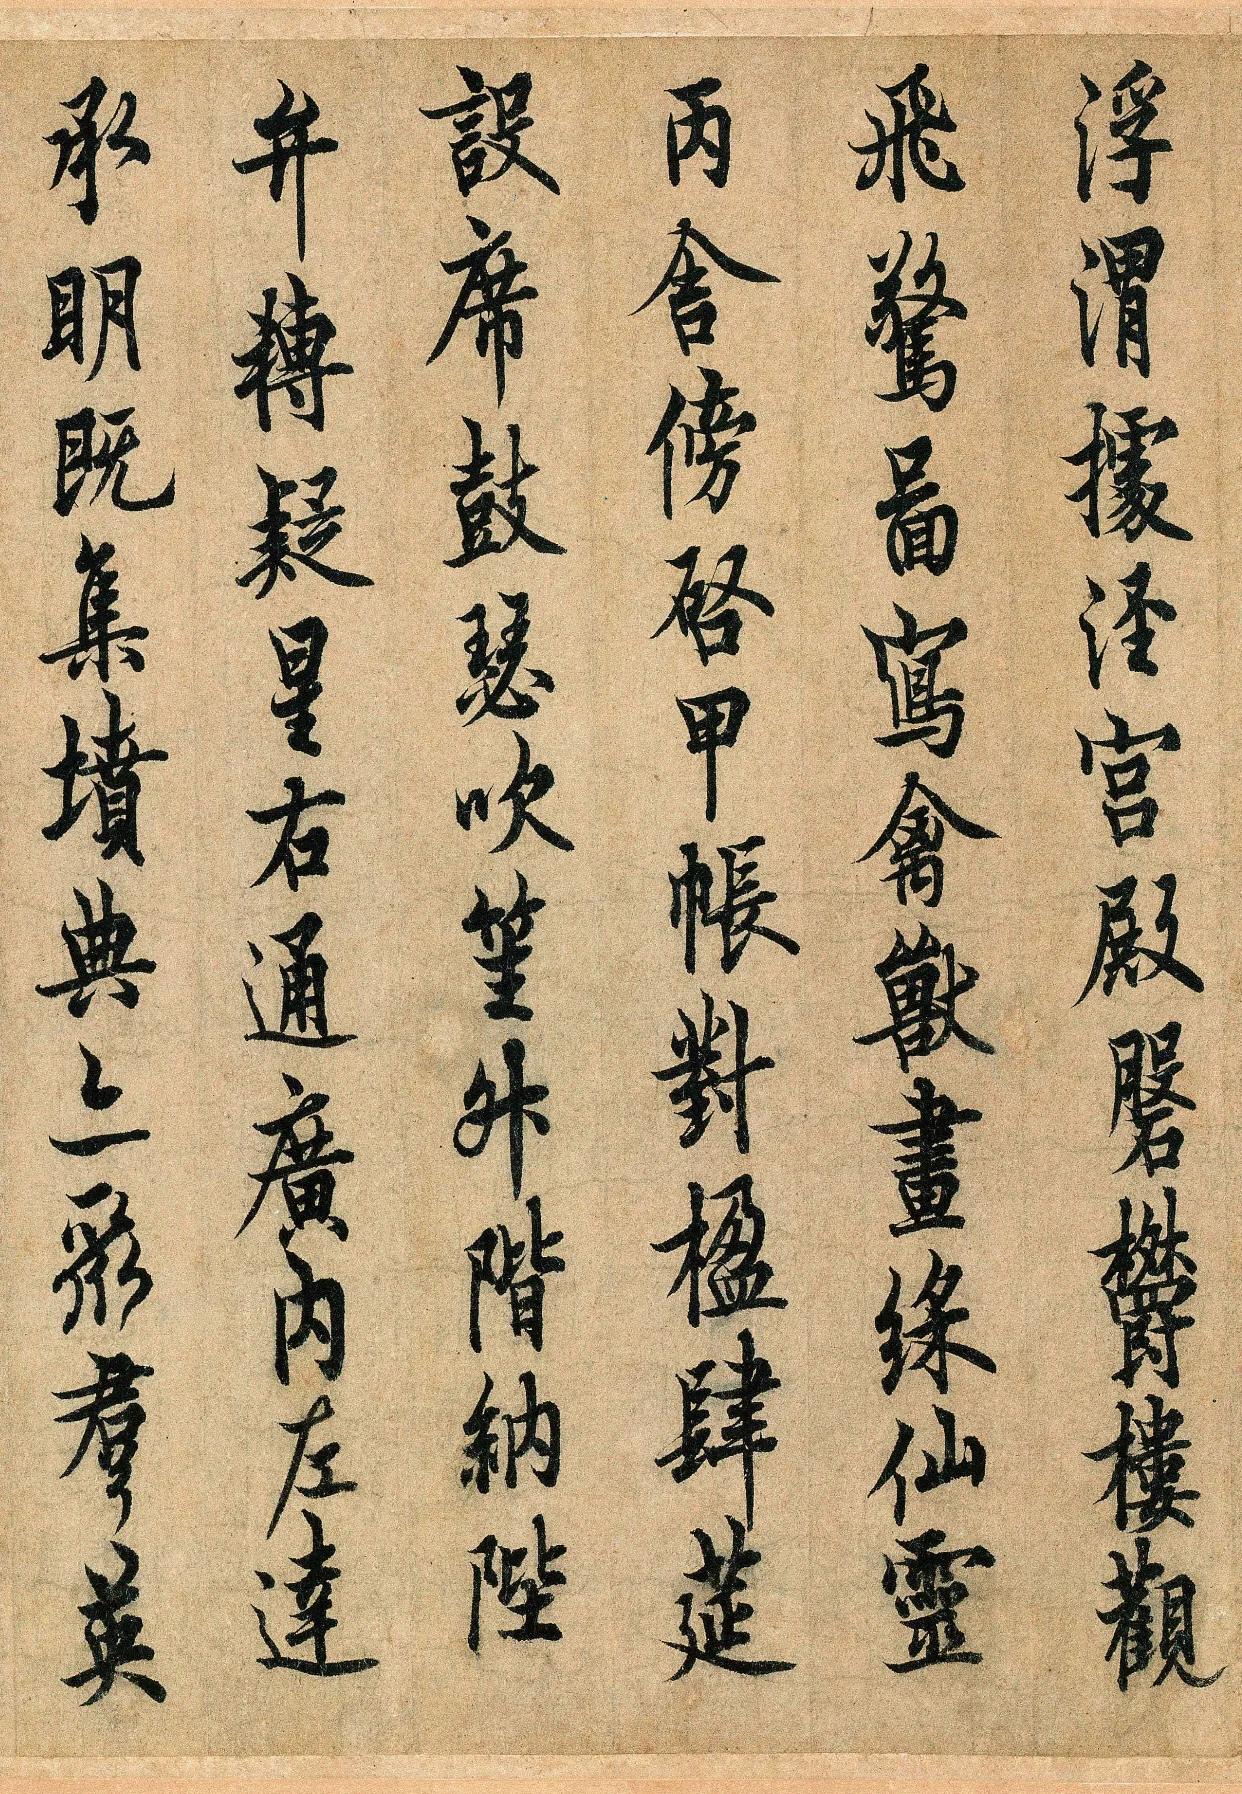 浮渭據涇宮殿磐欝樓觀
飛驚啚寫禽獸畫綵仙靈
丙舍傍啓甲帳對楹肆莚
設席鼓瑟吹笙外階納陛
弁轉疑星右通廣內左達
承明既集墳典亦聚羣英